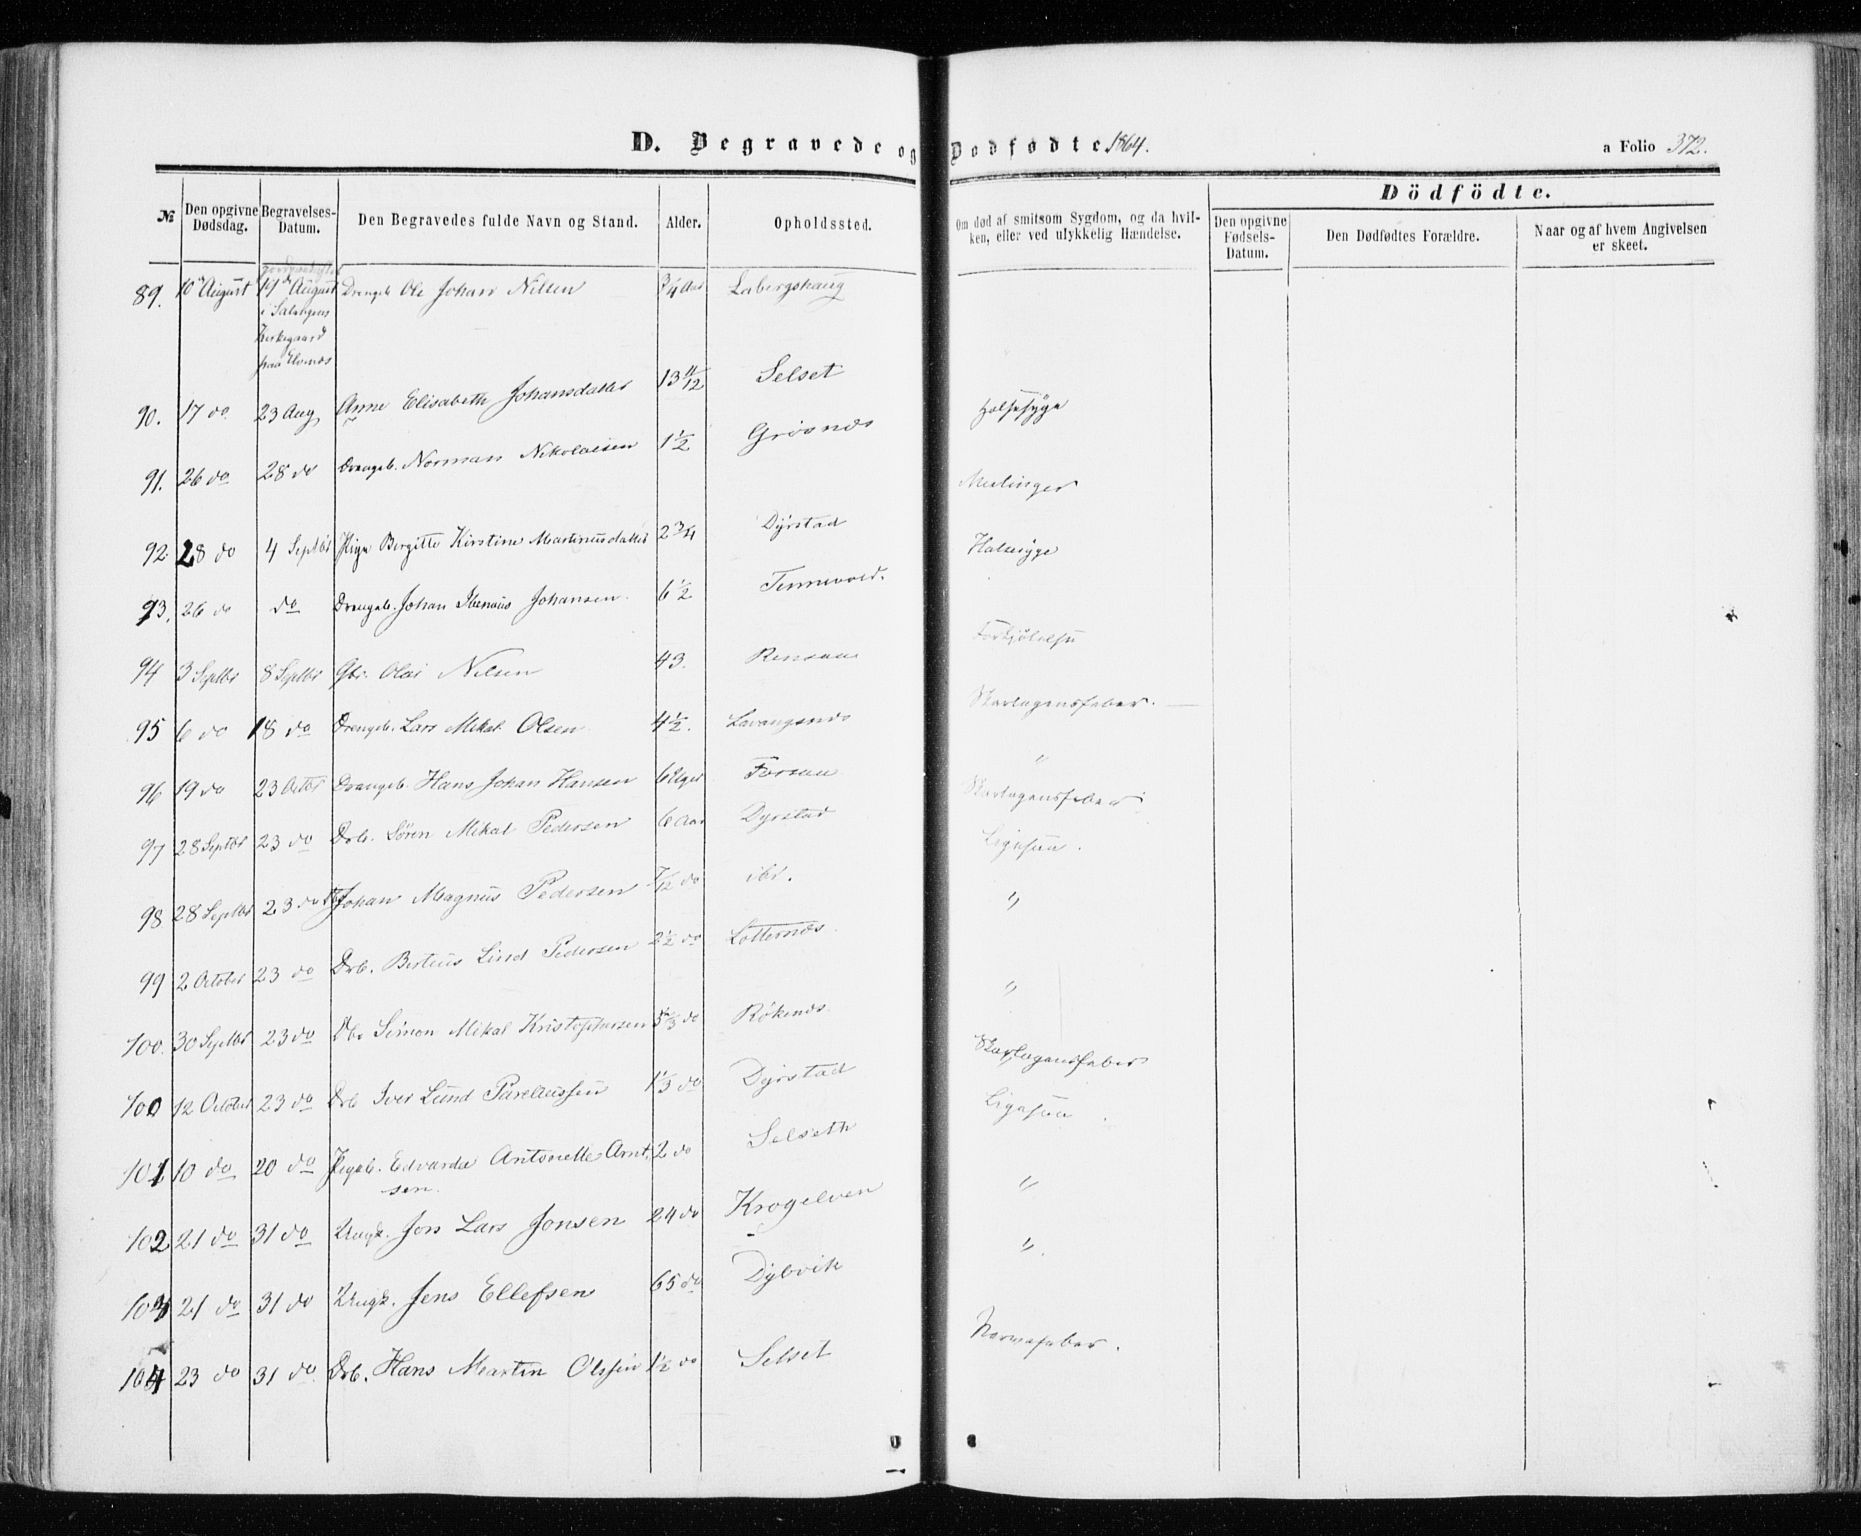 D. Begravede og Dødfødte 1864. a Folio 372.
Dödfödte.
№ Den opgivne Dødsdag. Begravelses-Datum. Den Begravedes fulde Navn og Stand. Alder. Opholdssted. Om død af smitsom Sygdom, og da hvilken, eller ved ulykkelig Hændelse. Den opgivne Fødsels-Datum. Den Dødfødtes Forældre. Naar og af hvem Angivelsen er skeet.
89. 10 August 14 August Drengeb. Ole Johan Nilsen 3/4 Aar Labergshaug
i Salangens
Kirkegaard
paa Elvenæs
90. 17 do 23 Aug Anne Elisabeth Johansdatter 13 11/12 Selset Halssyge
91. 26 do 28 do Drengeb. Norman Nikolaisen 1 1/2 Grøsnæs Meslinger
92. 28 do 4 Septbr Pige Birgitte Kirstine Martinusdatter 2 3/4 Dyrstad Halssyge
93. 26 do do Drengeb. Johan Johansen 6 1/2 Tennevold.
94 3 Septbr 8 Septbr Gbr. Olai Nilsen 43. Rensaa Forkjølelse
95 6 do 18 do Drengeb. Lars Mikal Olsen 4 1/2. Lavangsnæs Skarlagensfeber.
96 19 do 23 Octbr Drengeb. Hans Johan Hansen 6 Uger Forsaa "
97 28 Septbr 23 do Drb. Søren Mikal Pedersen 6 Aar Dyrstad Skarlagensfeber
98 28 Septbr 23 do Drb Johan Magnus Pedersen 7/12 do ibr. Ligesaa.
99 2 October 23 do Drb. Berteus Lind Pedersen 2 1/2 do Lotternæs "
100. 30 Septbr 23 do Db. Simon Mikal Kristophersen 5 do Røkenæs "
100 12 October 23 do Drb Iver Lund Parelaussen 1 1/3 do Dyrstad Skarlagensfeber
101 10 do 20 do Pigeb. Edvarda Antonette Arnt- 2 do Selseth Ligesaa.
sen.
102 21 do 31 do Ungk. Jon Lars Jonsen 24 do Krogelven "
103 21 do 31 do Ungk. Jens Ellefsen 65 do Dybvik "
104 23 do 31 do Drb. Hans Martin Olssen 1 1/2 do Selset Nervefeber.